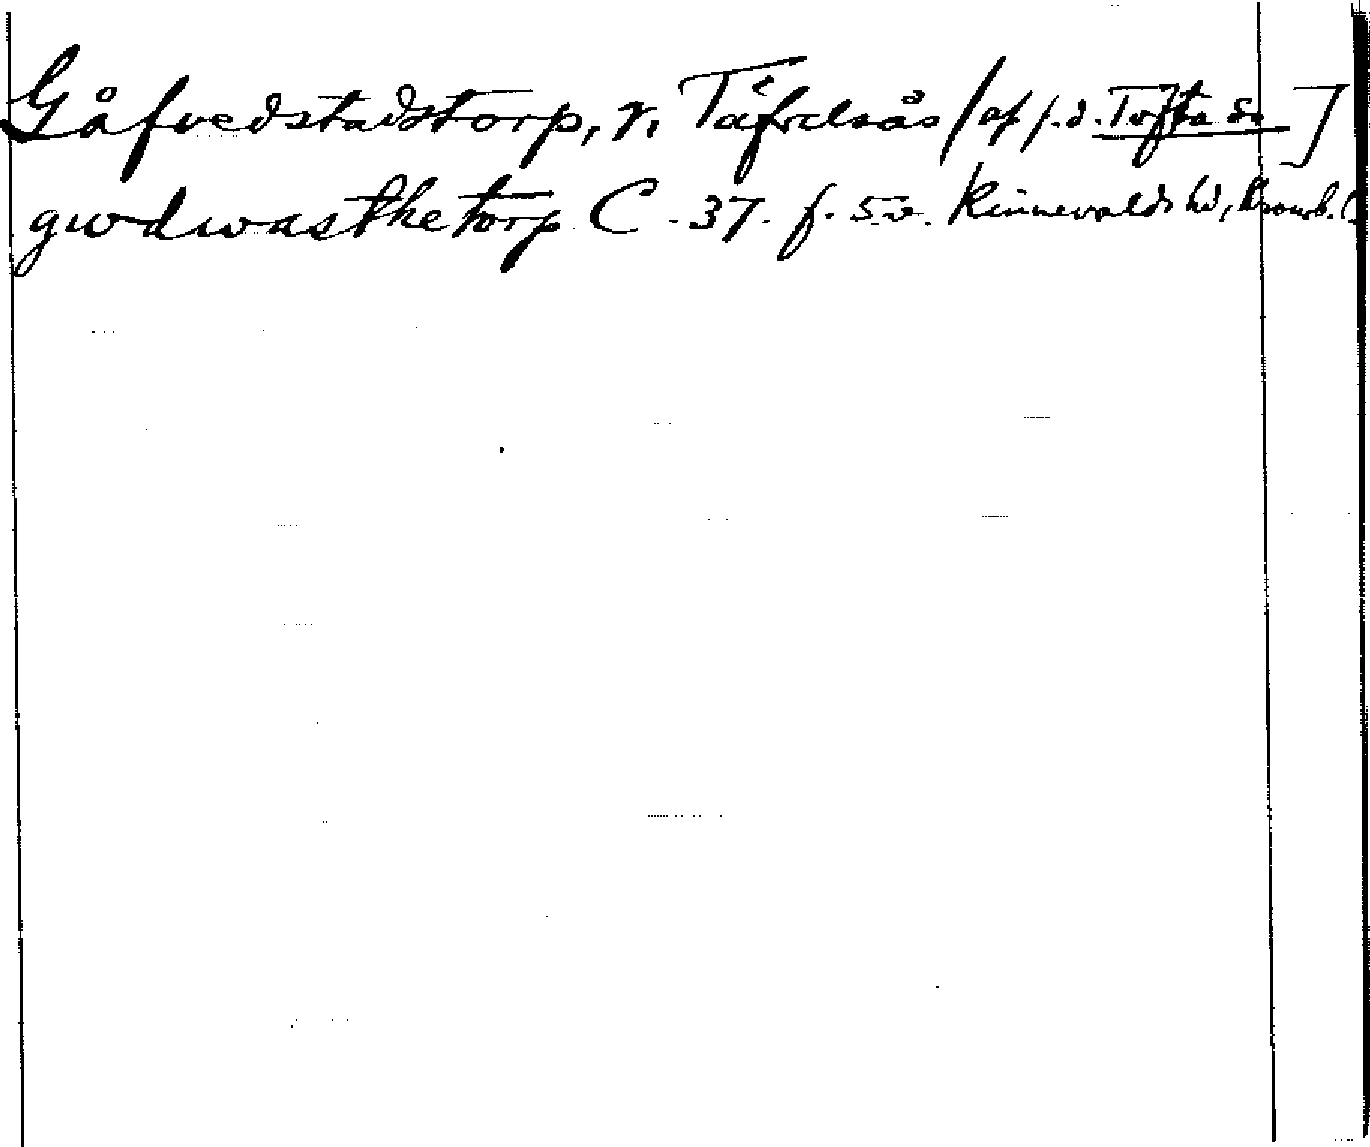 Gåfvedstadstorp, r, Täfvelsås [af s.d. Tofta sn]
gwdwasthetorp C. 37. f. 5.v. Kinnevalds hd, Kronob. l.